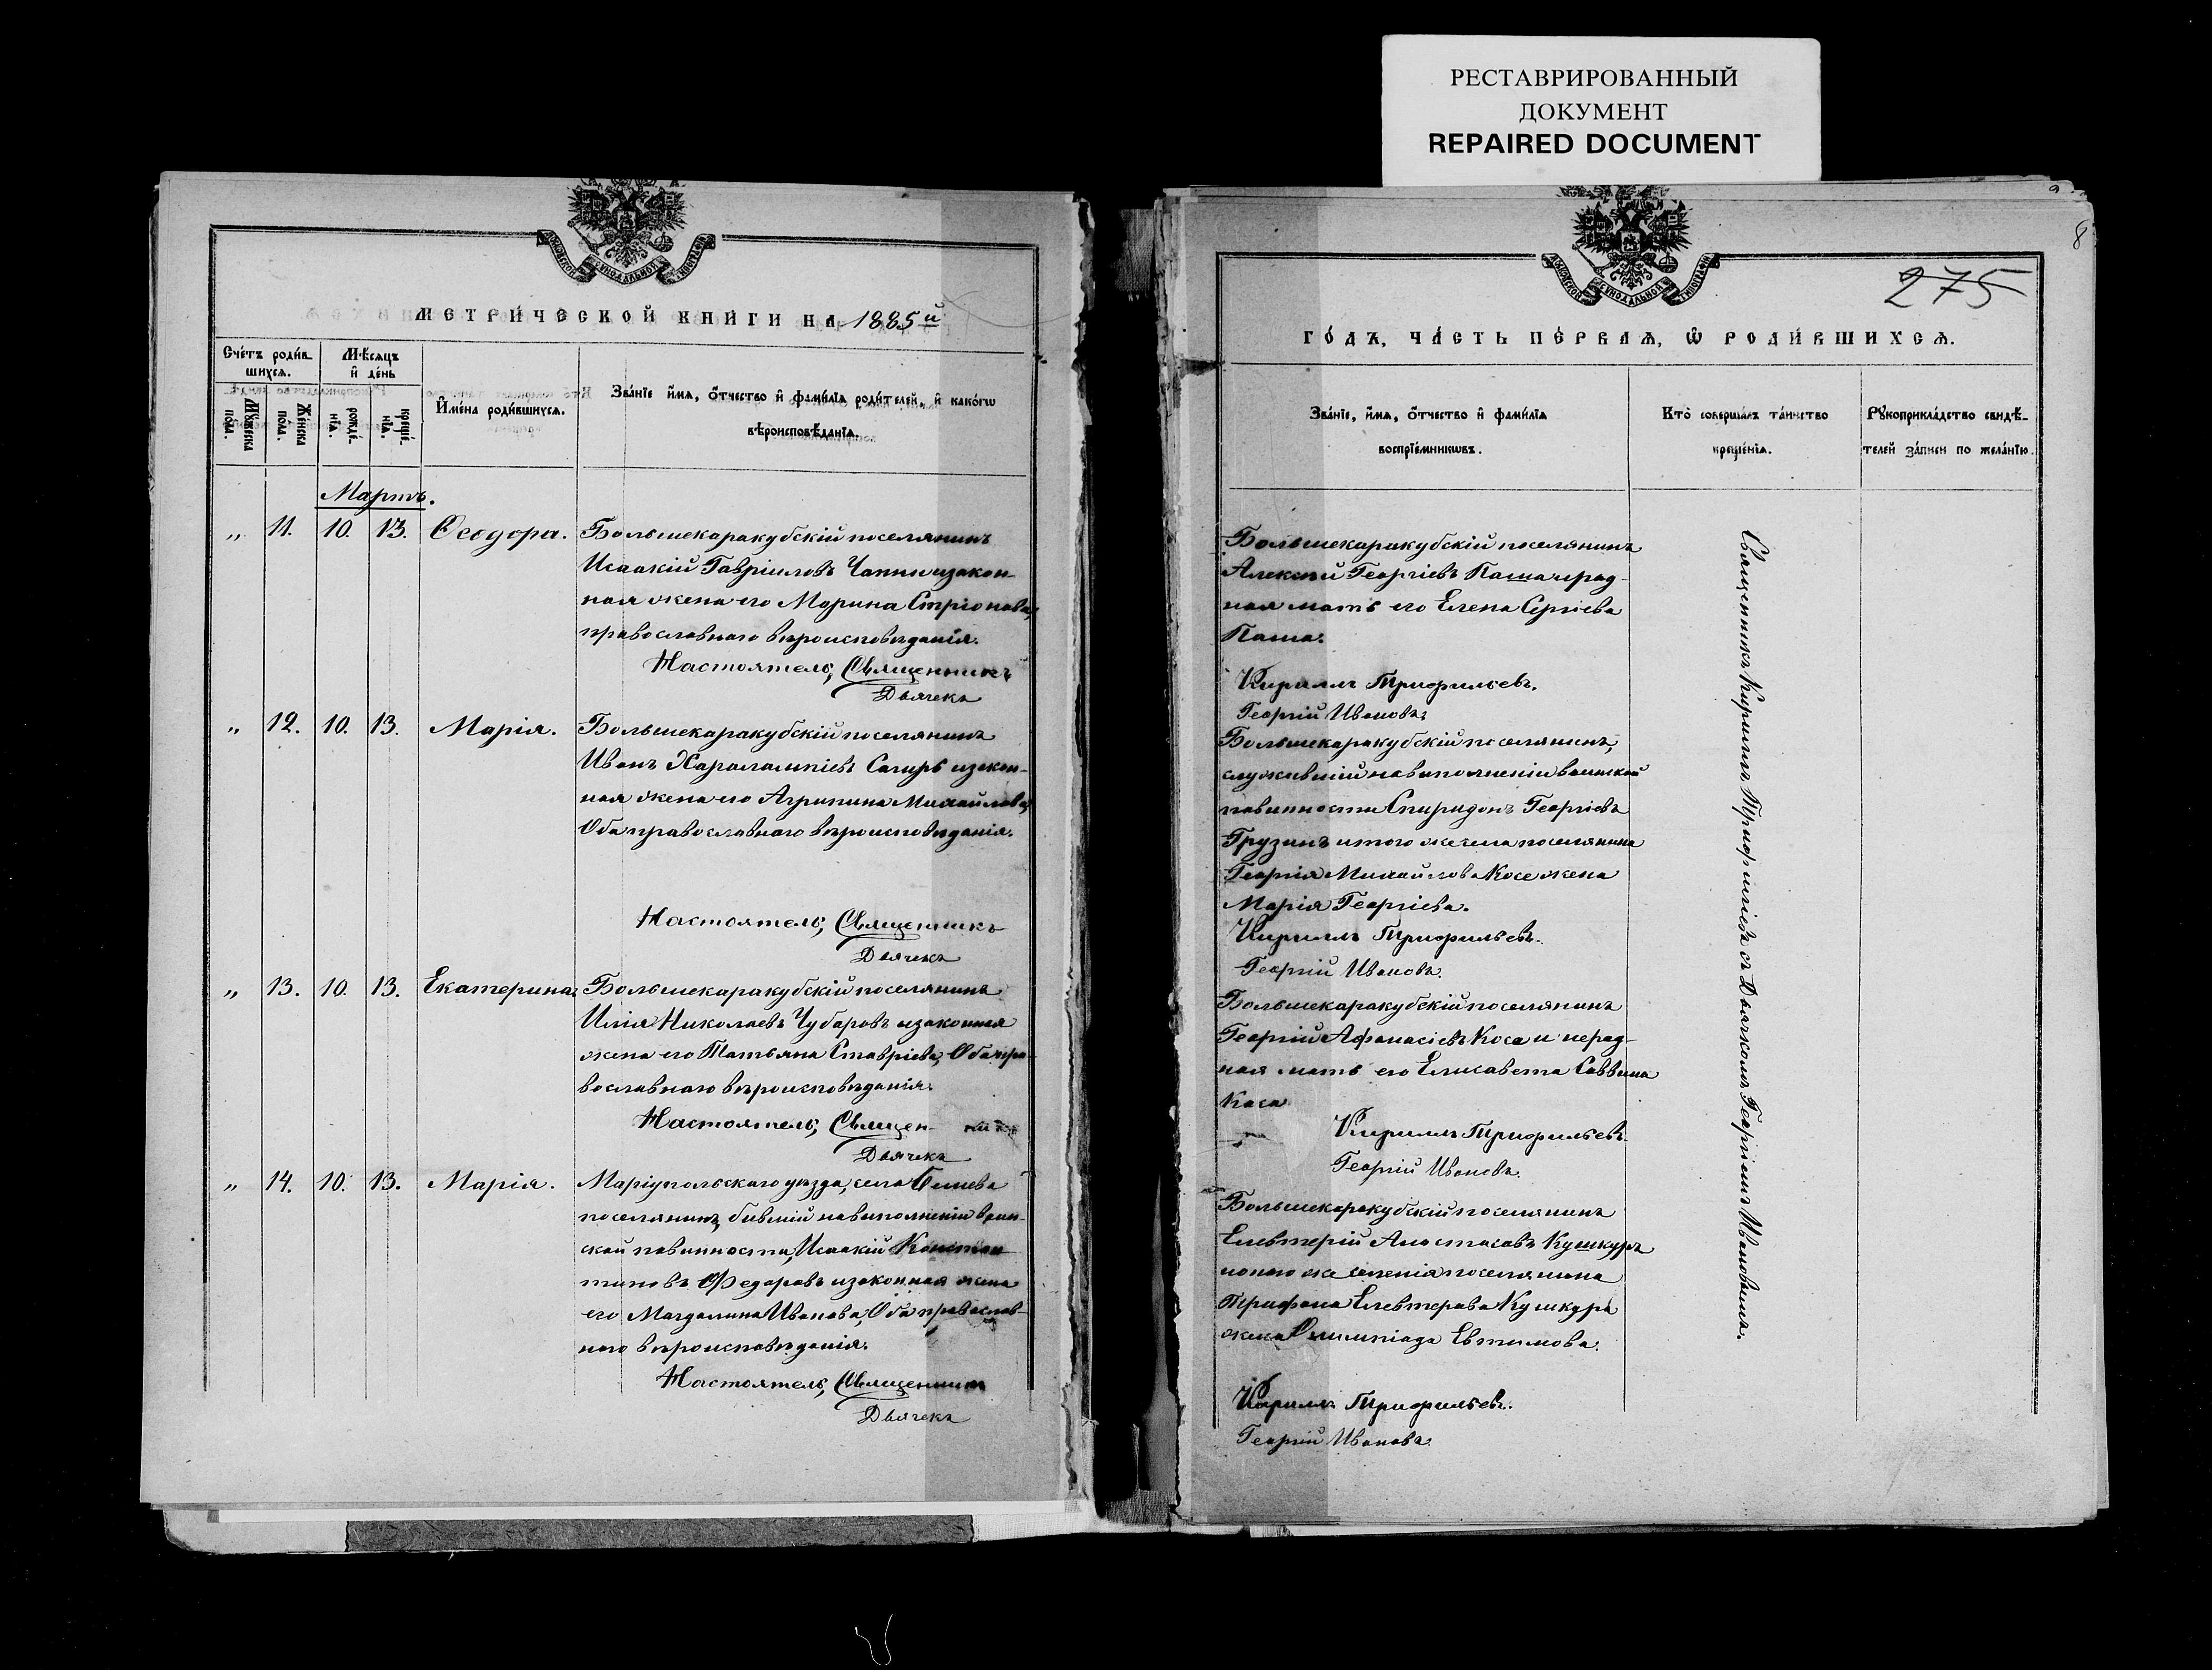 РЕСТАВРИРОВАННЫЙ
ДОКУМЕНТ
REPAIRED DOCUMENT
МОСКОВСКОЙ СѴНОДАЛЬНОЙ ТИПОГРАФІИ
МЕТРИ́ЧЕСКОЙ КНИ́ГИ НА 1885й
Сче́тъ роди́в-
шихся.
Мѣ́сяцъ
и҆ де́нь
Му́жеска
по́ла.
Же́нска
по́ла.
рожде́-
нїѧ.
креще́-
нїѧ.
И҆мена̀ роди́вшихся.
Зва́нїе и҆́мѧ, ѻ҆́тчество и҆ фами́лїѧ роди́телей, и҆ како́гѡ
вѣроисповѣ́данїѧ.
Мартъ.
„ 11. 10. 13. Ѳеодора. Большекаракубскій поселянинъ
Исаакій Гавріиловъ и закон-
ная жена его Марина
православнаго вѣроисповѣданія.
Настоятель, Священникъ
Дьячекъ
„ 12. 10. 13. Марія. Большекаракубскій поселянинъ
Иванъ Харалампіевъ Сагиръ и закон-
ная жена его Агрипина Михайлова,
Оба православнаго вѣроисповѣданія.
Настоятель, Священникъ
Дьячекъ
„ 13. 10. 13. Екатерина. Большекаракубскій поселянинъ
Илія Николаевъ Чубаровъ и законная
жена его Татьяна Ставріева, Оба пра-
вославнаго вѣроисповѣданія.
Настоятель, Священ-
Дьячекъ
„ 14. 10. 13. Марія. Маріупольскаго уѣзда, села Бешева
поселянинъ, бывшій на выполненіи воин-
ской повинности, Исаакій Констан-
тиновъ Федоровъ и законная жена
его Магдалина Иванова, Оба православ-
наго вѣроисповѣданія.
Настоятель, Священникъ
Дьячекъ
8
МОСКОВСКОЙ СѴНОДАЛЬНОЙ ТИПОГРАФІИ
275
ГО́ДЪ, ЧА́СТЬ ПЕ́РВАѦ, Ѡ҆ РОДИ́ВШИХСѦ.
Зва́нїе, и҆́мѧ, ѻ҆́тчество и҆ фами́лїѧ
воспрїе́мникѡвъ.
Кто̀ соверша́лъ та́инство
креще́нїѧ.
Рꙋкоприкла́дство свидѣ́-
телей за́писи по жела́нїю.
Большекаракубскій поселянинъ
Алексій Георгіевъ Паша и род-
ная мать его Елена Сергіева
Паша.
Кирилъ Трифильевъ.
Георгій Ивановъ.
Большекаракубскій поселянинъ,
служившій на выполненіи воинской
повинности Спиридонъ Георгіевъ
Грузинъ и того же села поселянина
Георгія Михайлова Косе жена
Марія Георгіева.
Кирилъ Трифильевъ.
Георгій Ивановъ.
Большекаракубскій поселянинъ
Георгій Афанасіевъ Коса и нерод-
ная мать его Елисавета Саввина
Коса
Кирилъ Трифильевъ.
Георгій Ивановъ.
Большекаракубскій поселянинъ
Елевтерій Анастасовъ Кушкуръ
и того же селенія поселянина
Трифона Елевтерова Кушкура
жена Олимпіада Евтимова.
Кирилъ Трифильевъ.
Георгій Ивановъ.
Священникъ Кирилъ Трифиліевъ съ Дьячкомъ Георгіемъ Ивановымъ.